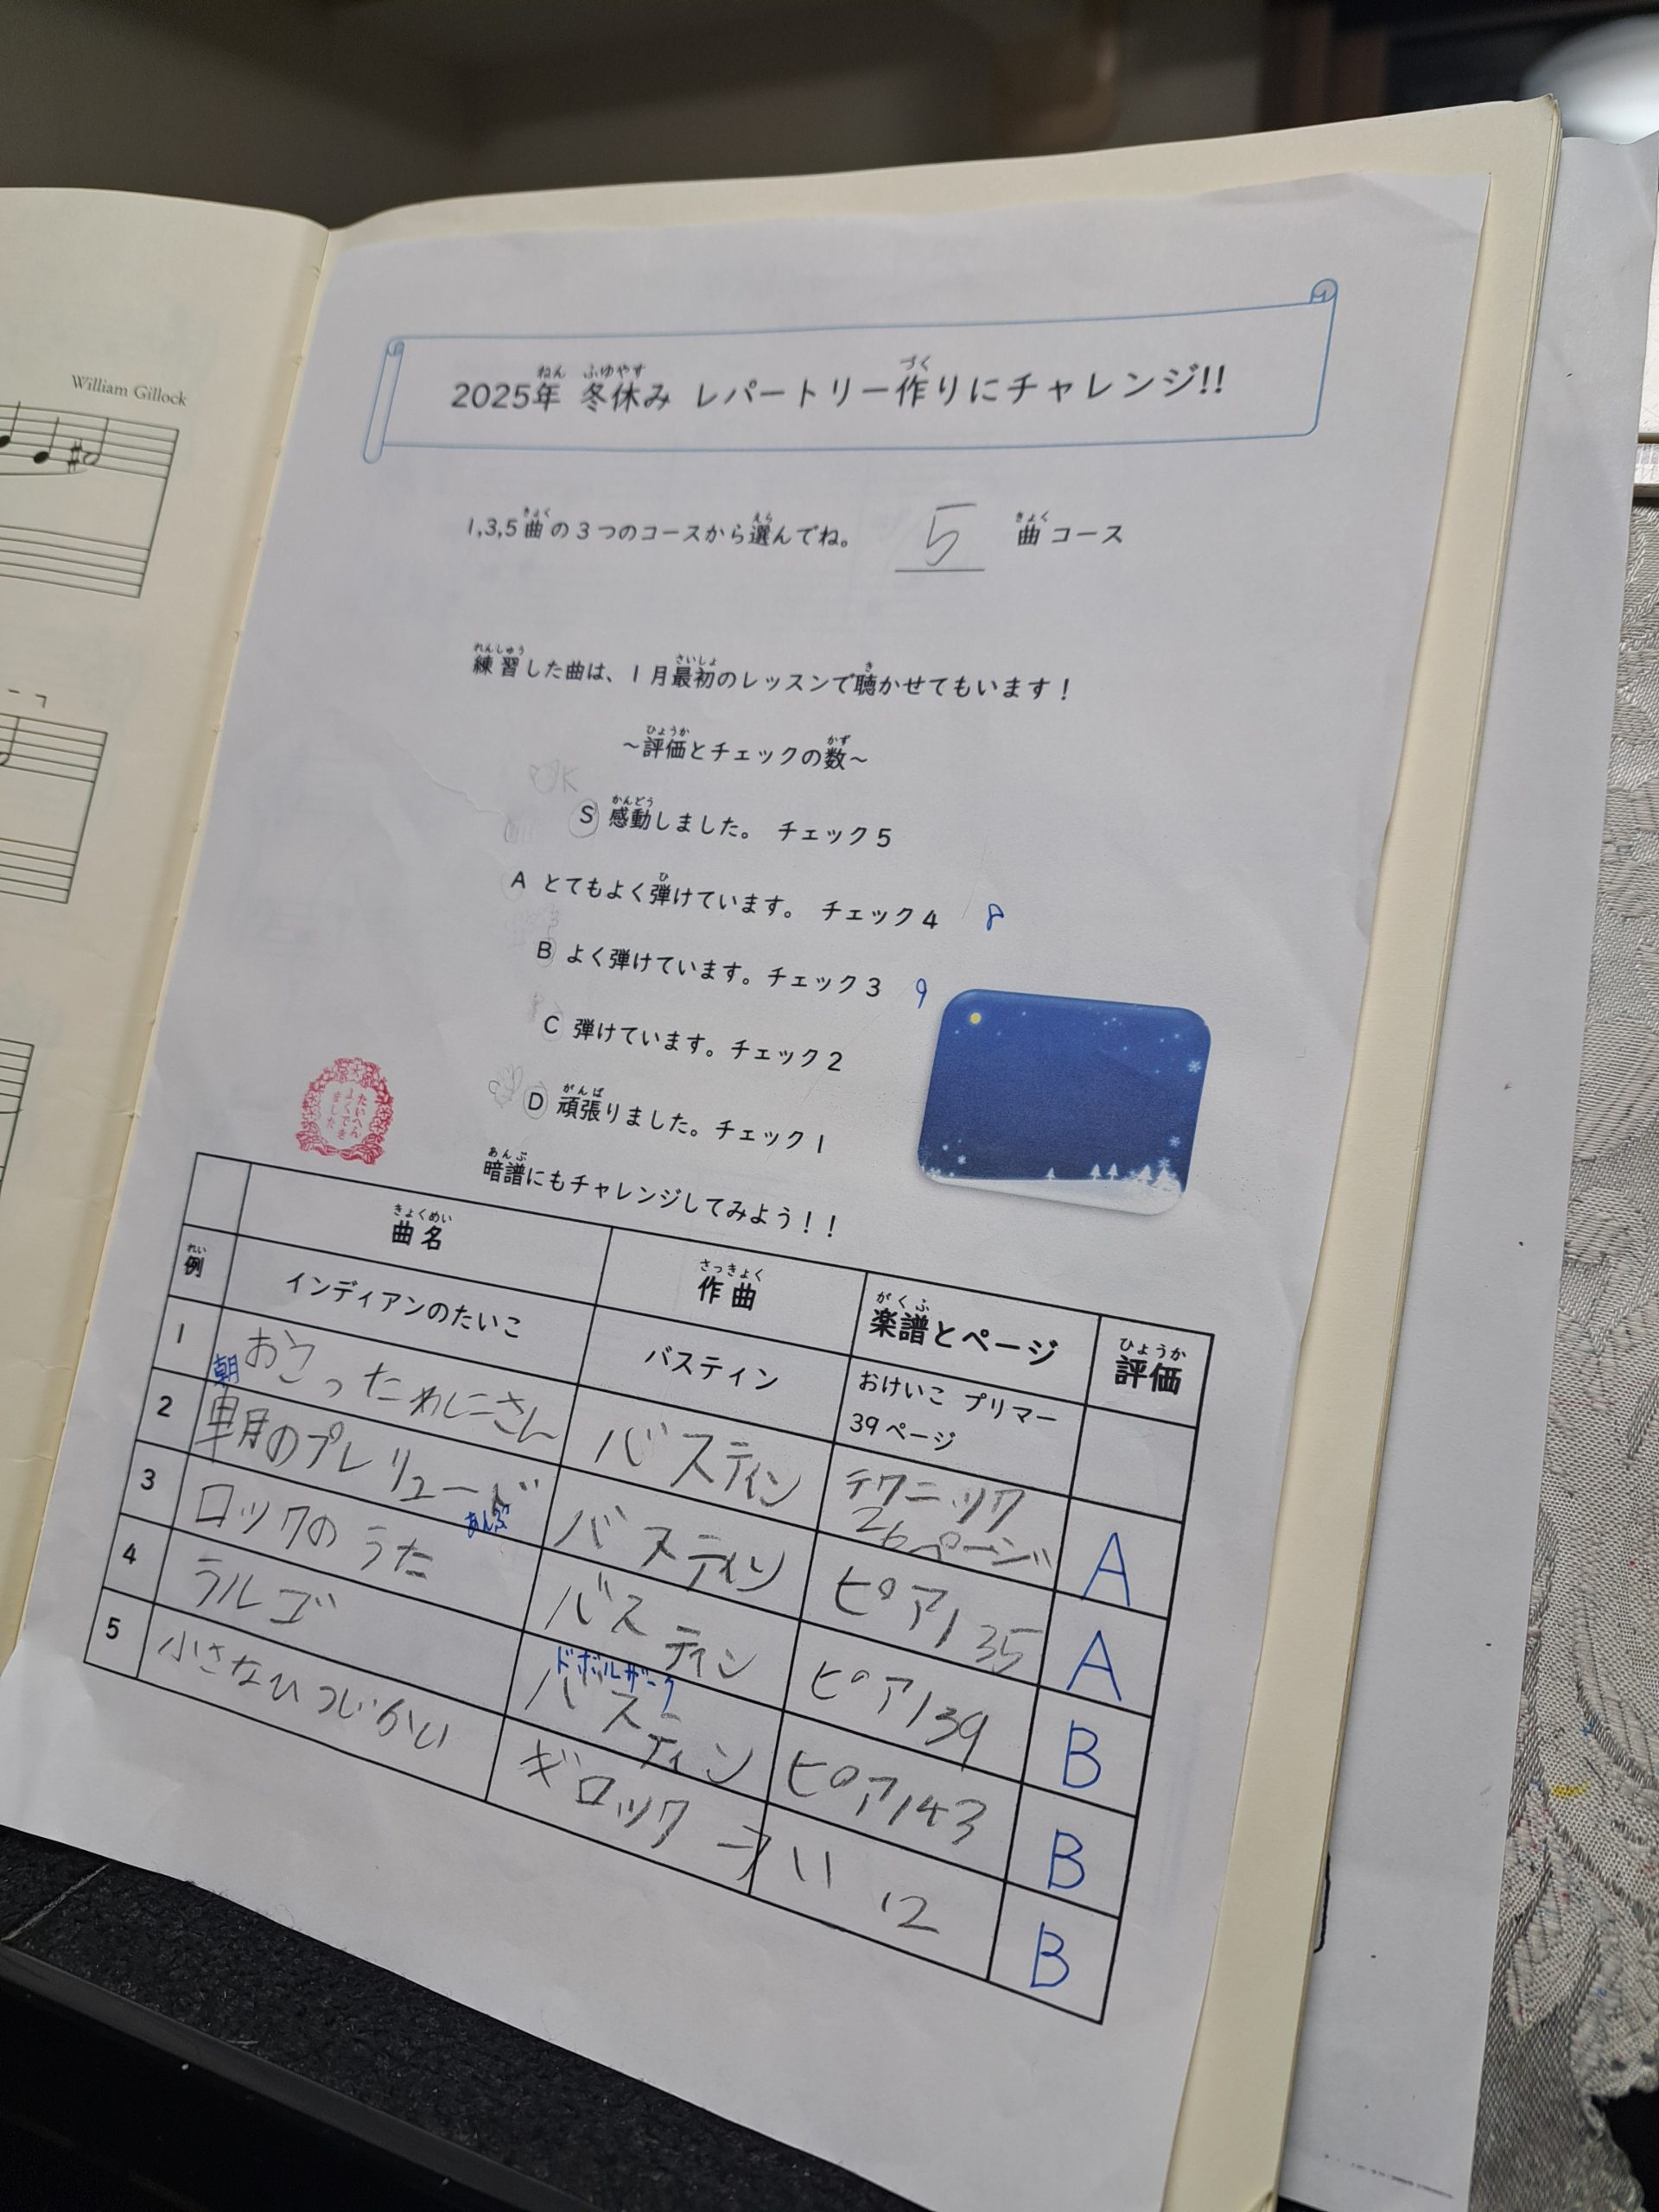 William Gillock
2025年 冬休み レパートリー作りにチャレンジ!!
1,3,5曲の3つのコースから選んでね。 5 曲コース
練習した曲は、1月最初のレッスンで聴かせてもいます！
～評価とチェックの数～
S 感動しました。 チェック5
A とてもよく弾けています。 チェック4 8
B よく弾けています。チェック3 9
C 弾けています。チェック2
D 頑張りました。チェック1
たいへん
よくでき
ました
暗譜にもチャレンジしてみよう！！
曲名 作曲 楽譜とページ 評価
例 インディアンのたいこ バスティン おけいこ プリマー
39ページ
1 おこったわしこさん バスティン テクニック
26ページ A
朝
2 朝のプレリュード バスティン ピア1 35 A
あんぷ
3 ロックのうた バスティン ピア1 39 B
ドボルザーク
4 ラルゴ バスティン ピア1 43 B
5 小さなひつじかい ギロック 12 B